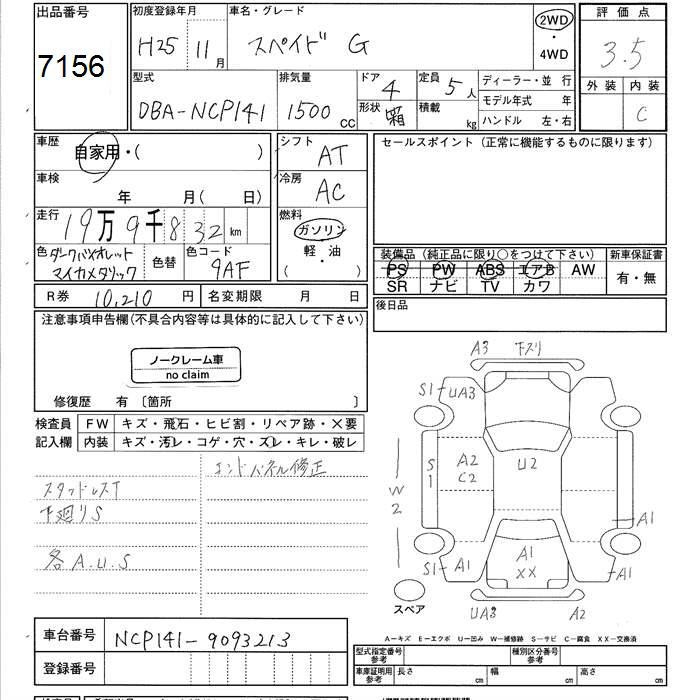 出品番号
7156
初度登録年月
H25 11月
車名・グレード
スペイド G
2WD
・
4WD
評価点
3.5
外装 内装
C
型式
DBA-NCP141
排気量
1500 CC
ドア 4
形状 箱
定員 5人
積載 kg
ディーラー・並 行
モデル年式 年
ハンドル 左・右
車歴
自家用・( )
車検
年 月( 日)
走行
19万9千832km
色 ダークバイオレット
マイカメタリック
色替
色コード
9AF
シフト
AT
冷房
AC
燃料
ガソリン
軽・油
( )
セールスポイント(正常に機能するものに限ります)
装備品(純正品に限り○をつけて下さい)
PS PW ABS エアB AW
SR ナビ TV カワ
新車保証書
有・無
R券 10,210 円
名変期限 月 日
後日品
注意事項申告欄(不具合内容等は具体的に記入して下さい)
ノークレーム車
no claim
修復歴 有〔箇所 〕
検査員
記入欄
FW キズ・飛石・ヒビ割・リペア跡・×要
内装 キズ・汚レ・コゲ・穴・ズレ・キレ・破レ
エンドパネル修正
スタッドレスT
下廻りS
各A.U.S
A3 下スリ
S1 UA3
S1
A2
C2
U2
W2
A1
S1 A1
A1
XX
A1
スペア
UA3 A2
A―キズ E―エクボ U―凹み W―補修跡 S―サビ C―腐食 XX―交換済
車台番号
NCP141-9093213
登録番号
型式指定番号
参考
種別区分番号
参考
車庫証明用
参考
長さ cm
幅 cm
高さ cm